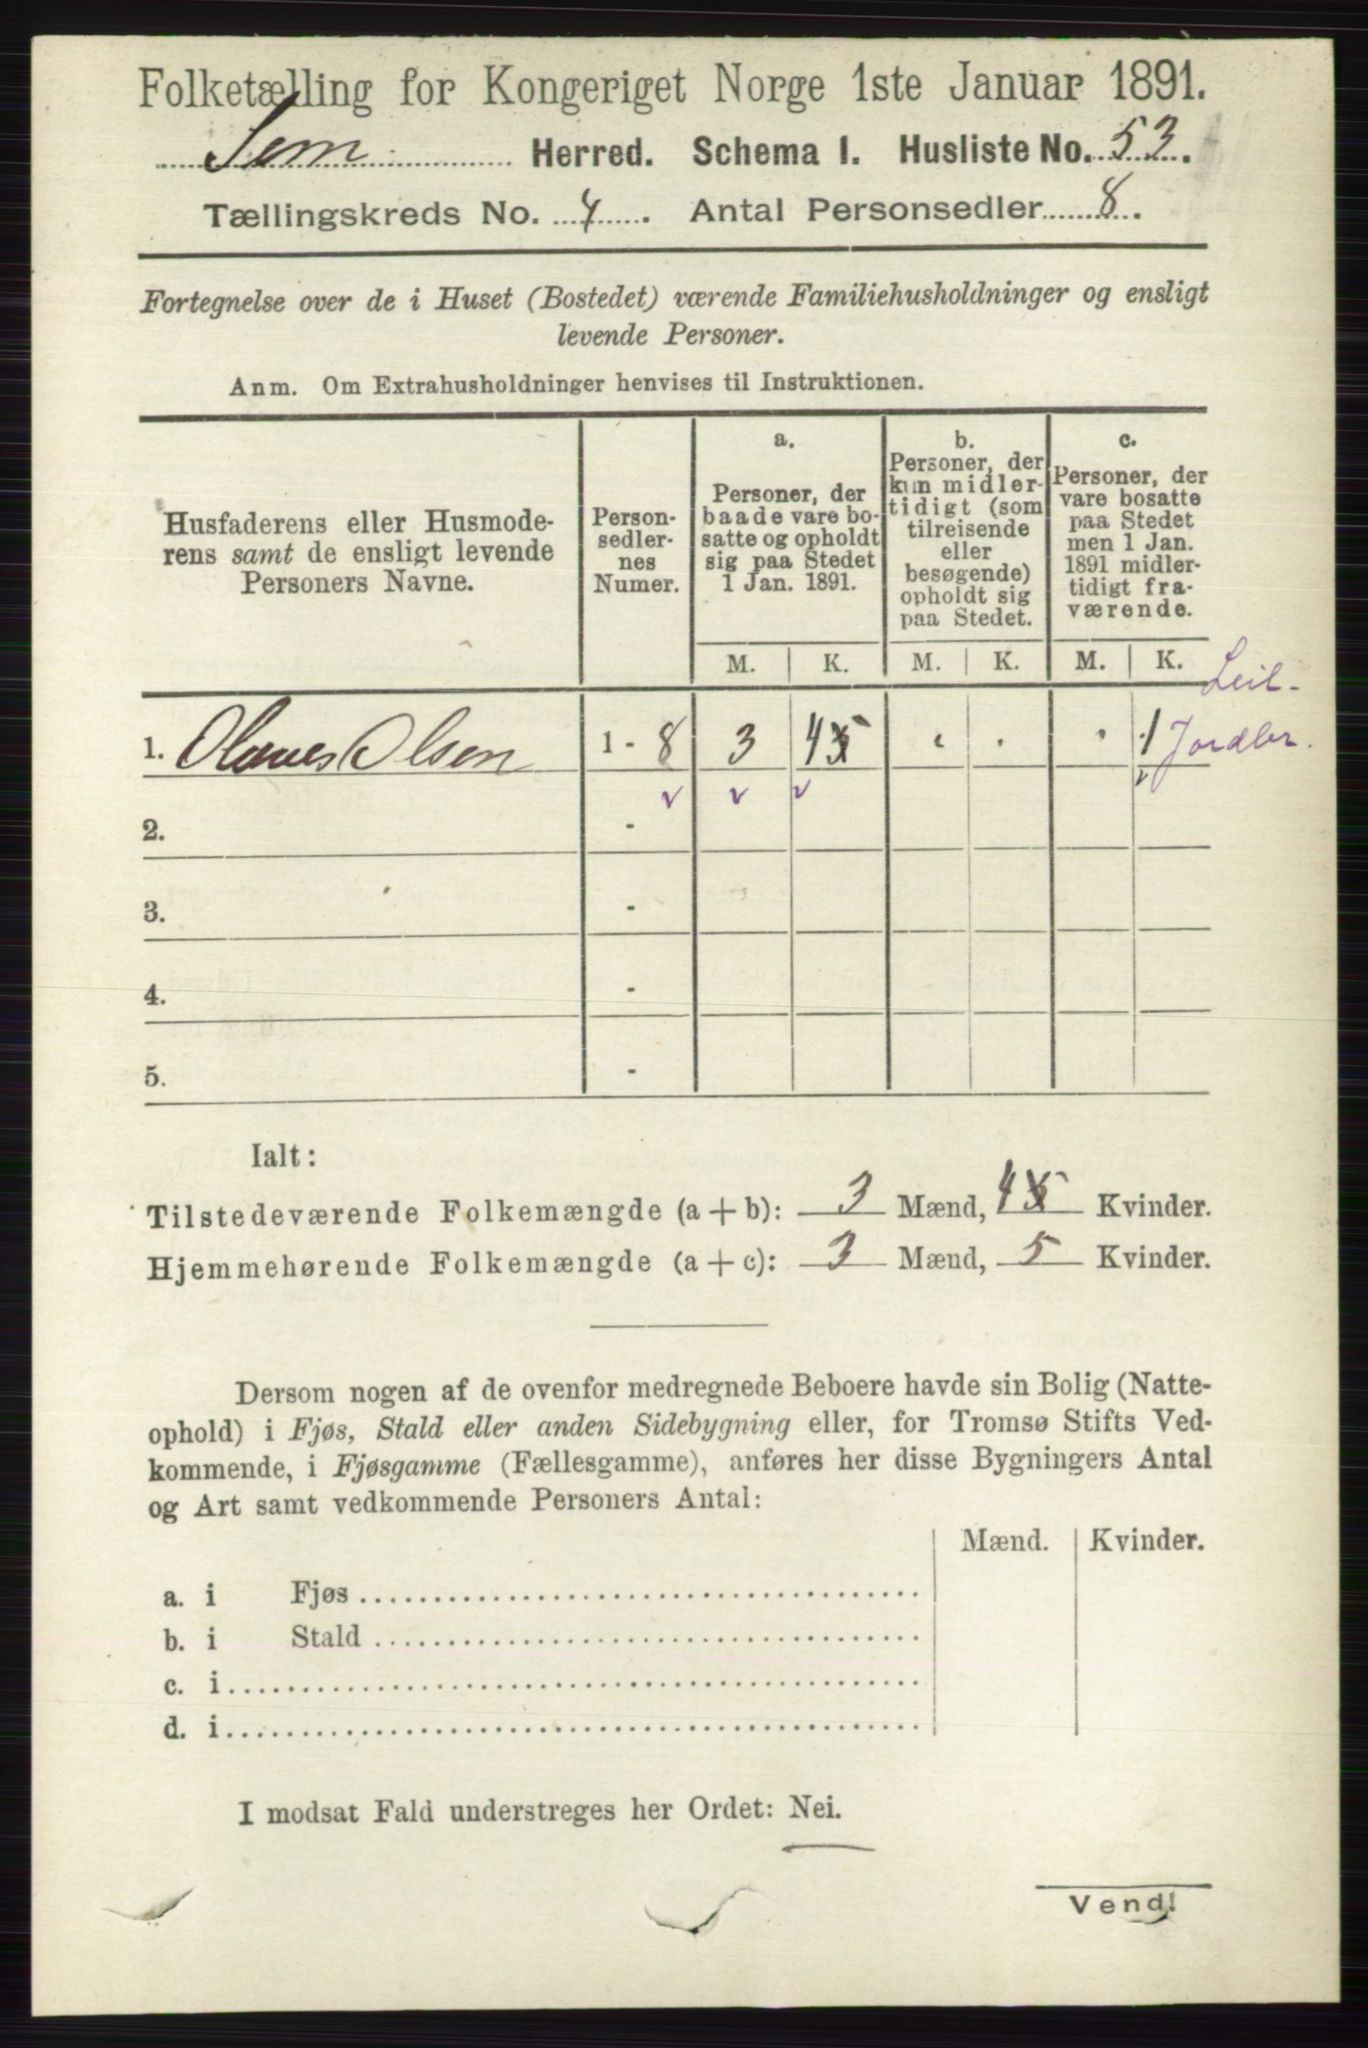 Folketælling for Kongeriget Norge 1ste Januar 1891.
Sem Herred. Schema I. Husliste No. 53.
Tællingskreds No. 4. Antal Personsedler 8.
Fortegnelse over de i Huset (Bostedet) værende Familiehusholdninger og ensligt
levende Personer.
Anm. Om Extrahusholdninger henvises til Instruktionen.
Husfaderens eller Husmode-
rens samt de ensligt levende
Personers Navne.
Person-
sedler-
nes
Numer.
a.
Personer, der
baade vare bo-
satte og opholdt
sig paa Stedet
1 Jan. 1891.
b.
Personer, der
kun midler-
tidigt (som
tilreisende
eller
besøgende)
opholdt sig
paa Stedet.
c.
Personer, der
vare bosatte
paa Stedet
men 1 Jan.
1891 midler-
tidigt fra-
værende.
M. K. M. K. M. K.
Leil-
1. Olaves Olsen 1 - 8 3 4 5 1 Jordbr.
2. -
3. -
4. -
5. -
Ialt:
Tilstedeværende Folkemængde (a + b): 3 Mænd, 4 5 Kvinder.
Hjemmehørende Folkemængde (a + c): 3 Mænd, 5 Kvinder.
Dersom nogen af de ovenfor medregnede Beboere havde sin Bolig (Natte-
ophold) i Fjøs, Stald eller anden Sidebygning eller, for Tromsø Stifts Ved-
kommende, i Fjøsgamme (Fællesgamme), anføres her disse Bygningers Antal
og Art samt vedkommende Personers Antal:
Mænd. Kvinder.
a. i Fjøs
b. i Stald
c. i
d. i
I modsat Fald understreges her Ordet: Nei.
Vend!